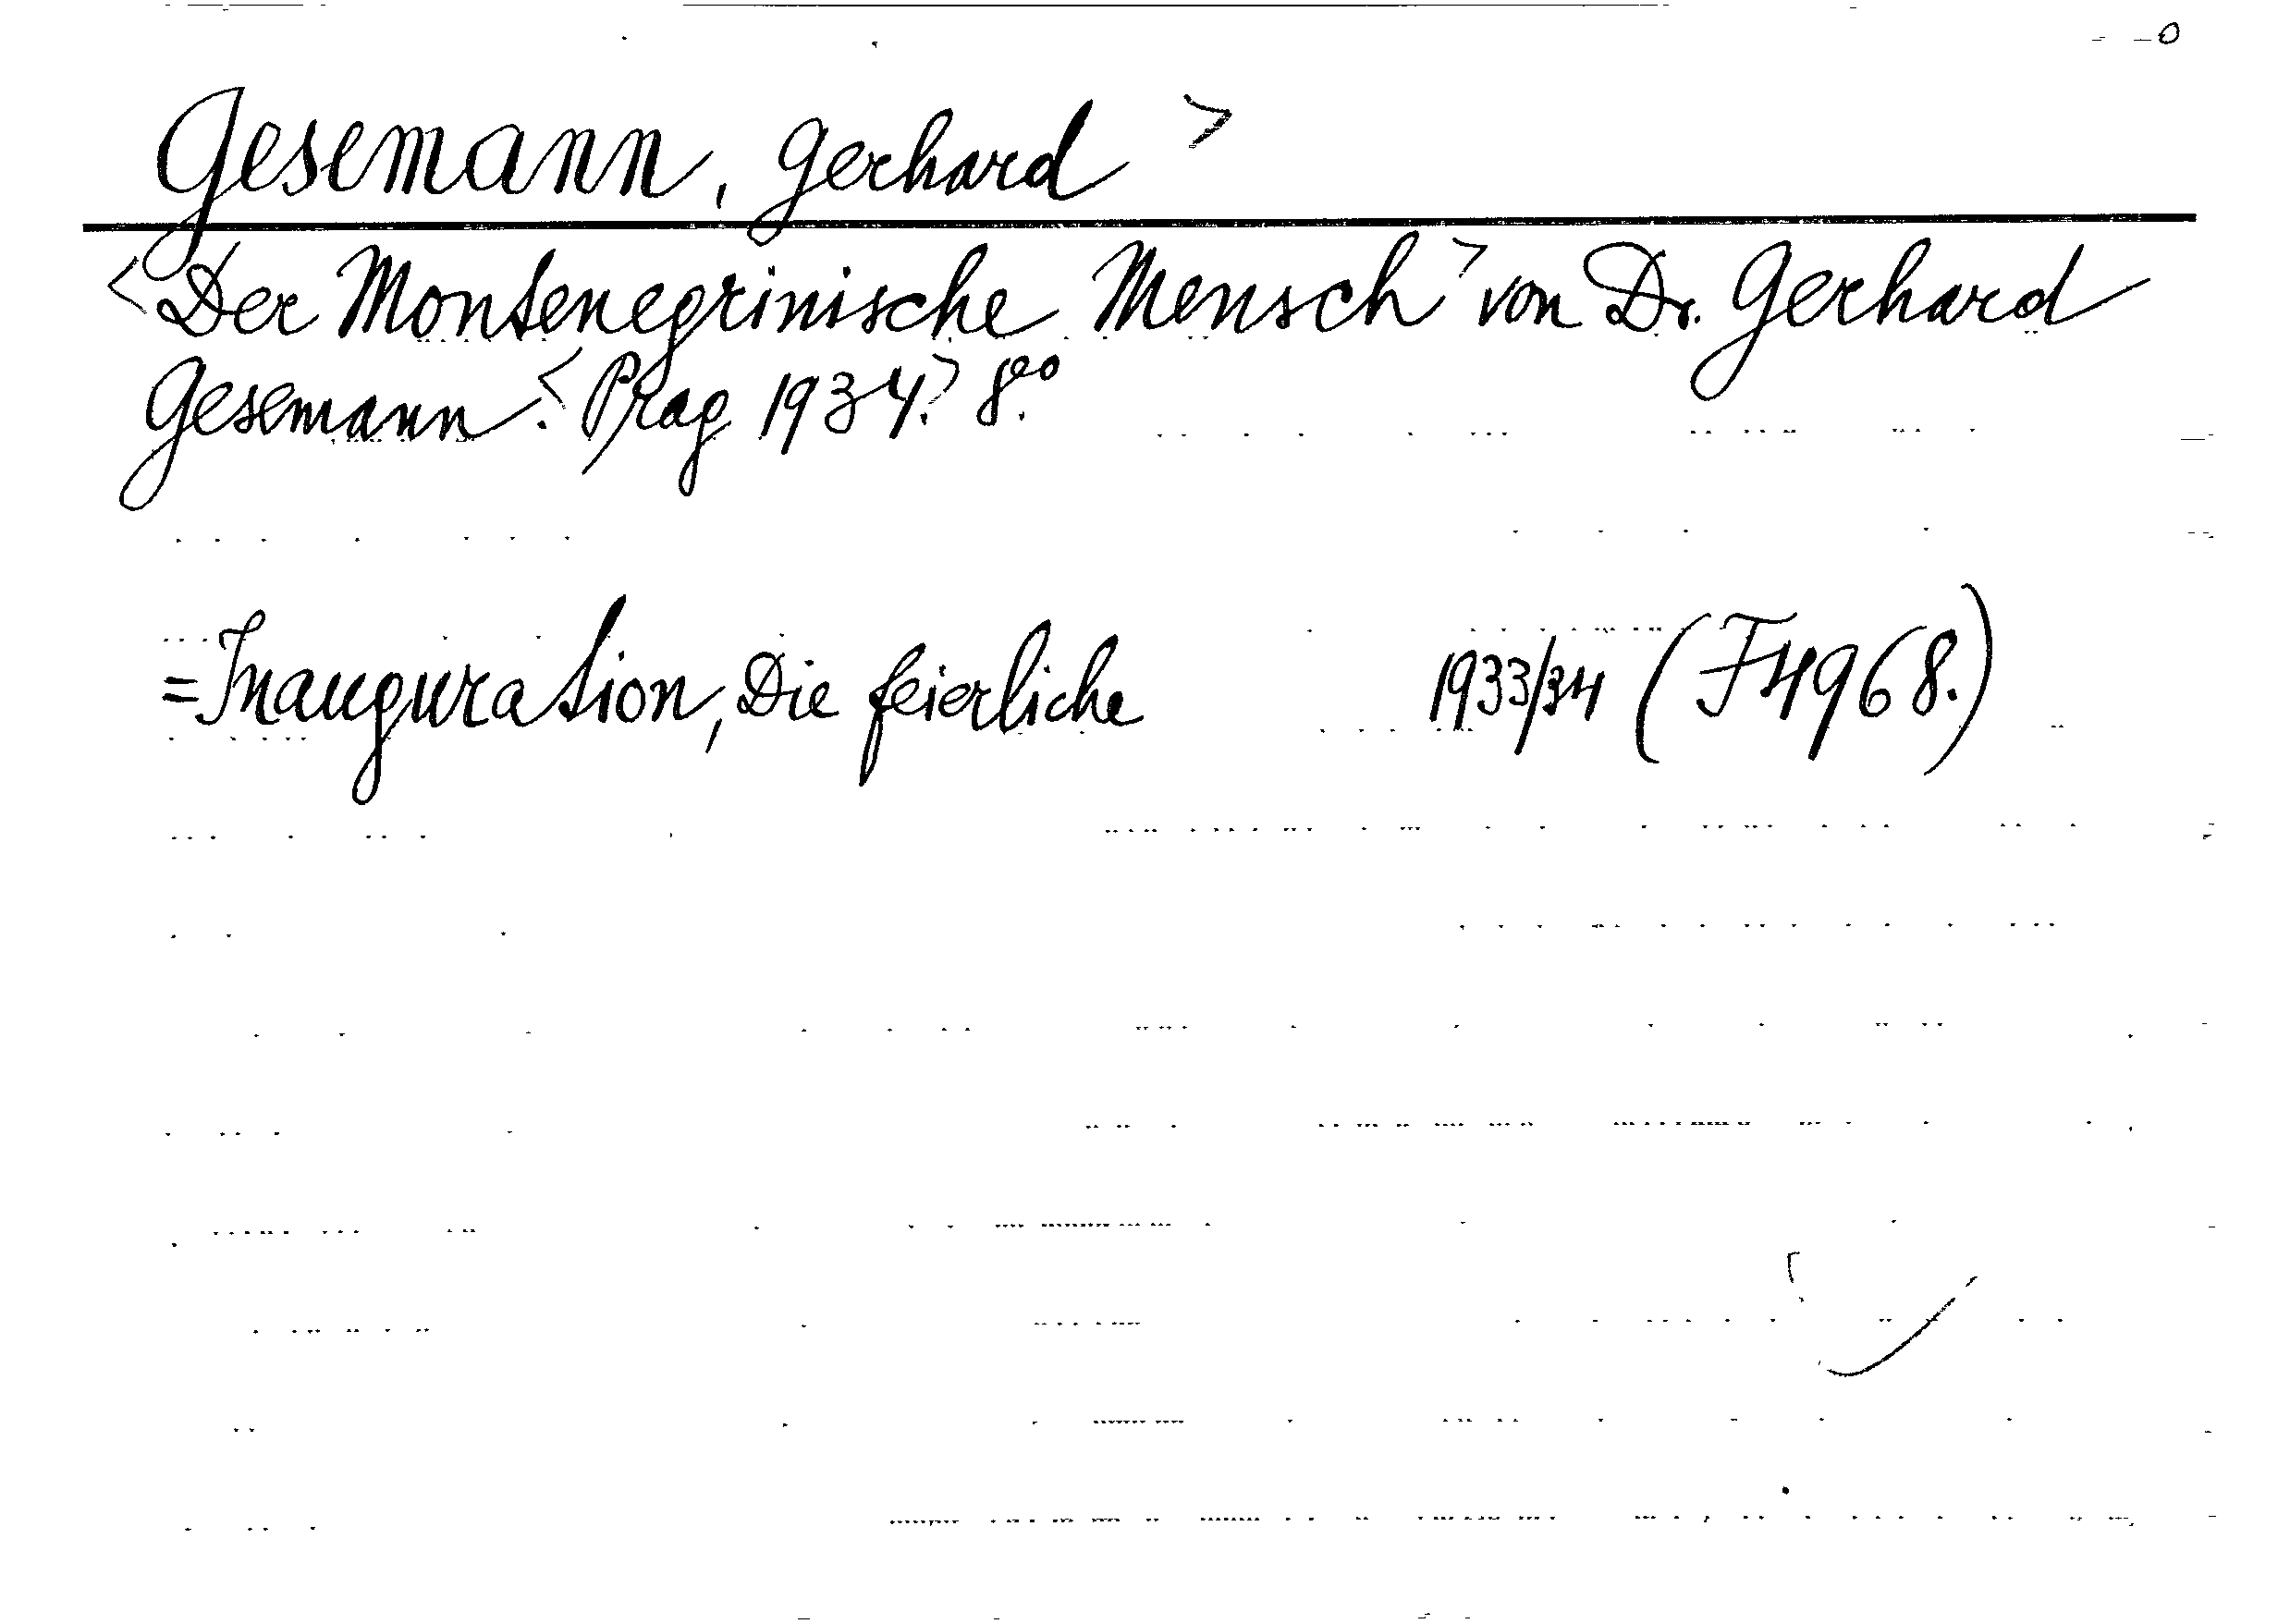 Gesemann, Gerhard >
<Der Montenegrinische Mensch> von Dr. Gerhard
Gesemann. <Prag 1934.> 8.°°
=Inauguration, Die feierliche 1933/34 (F4968.)